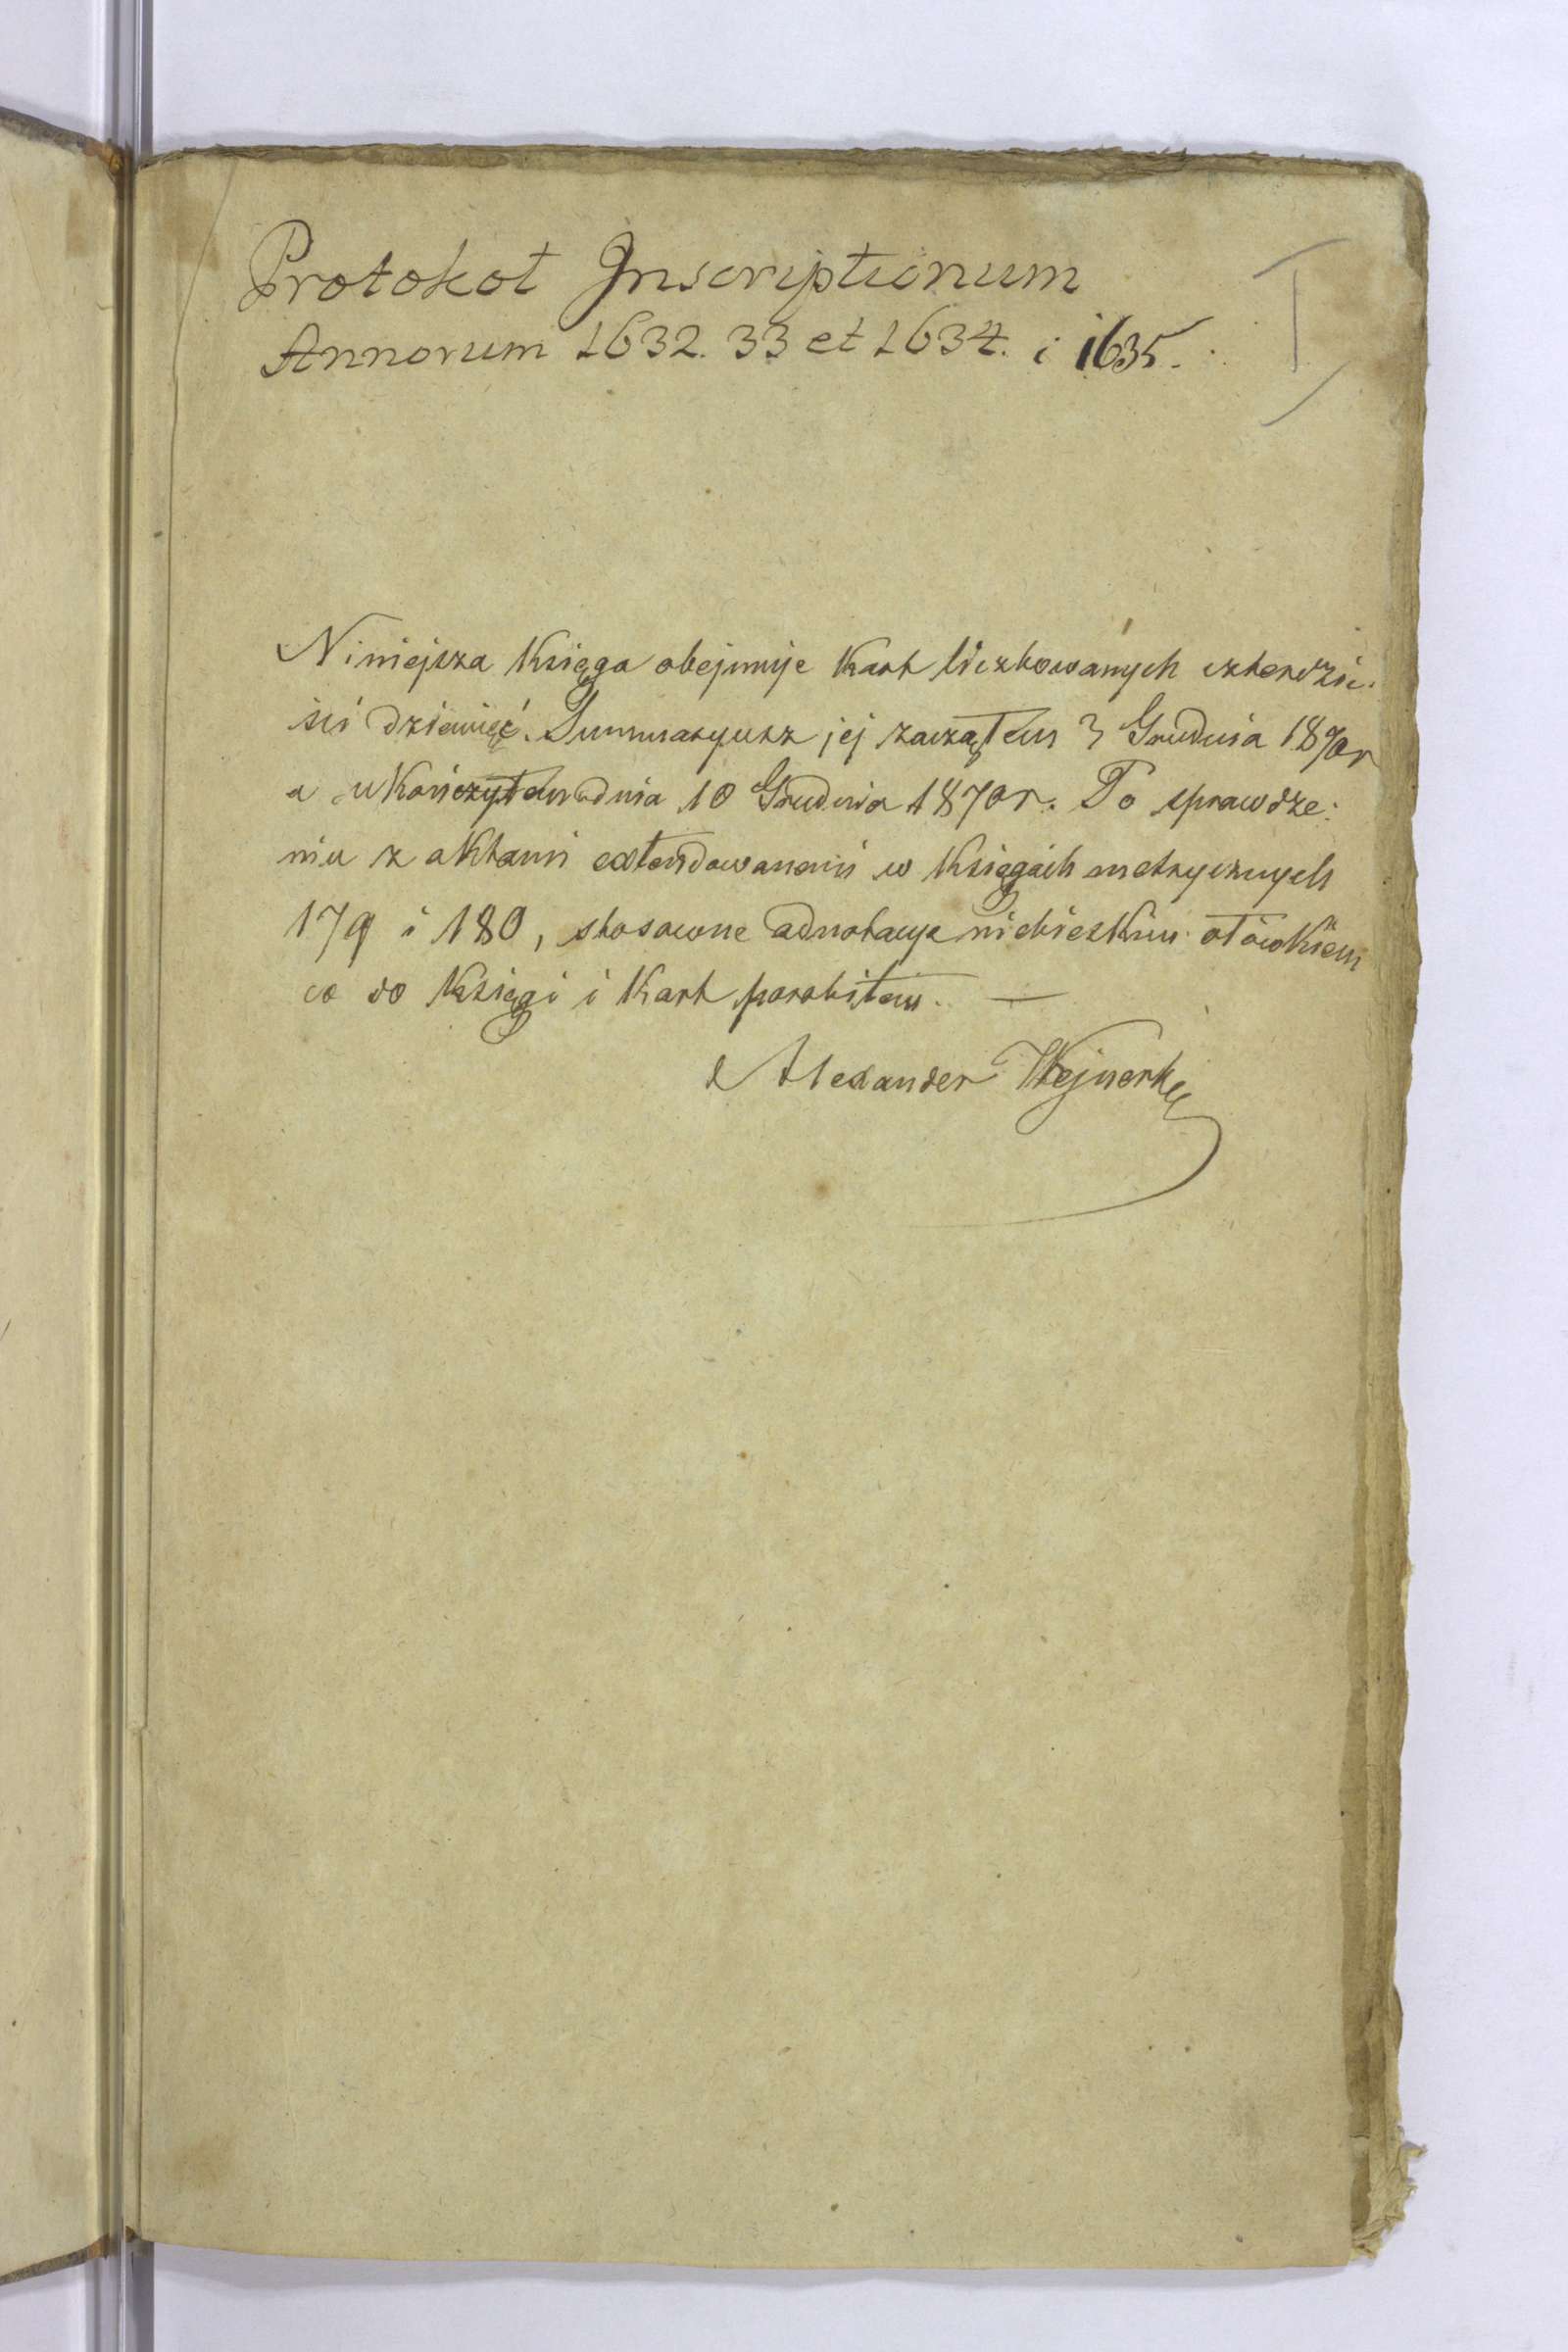 Protokoł Inscriptionum
I
Annorum 1632. 33 et 1634. i 1635.
Niniejsza Księga obejmuje Kart liczbowanych czterdzie:
ści dziewięć. Summaryusz jej zacząłem 3 Grudnia 1870r
a ukończyłem dnia 10 Grudnia 1870r. Po sprawdze:
niu z aktami extendowanemi w Księgach metrycznych
179 i 180, stosowne adnotacye niebieskim ołówkiem
co do Księgi i Kart porobiłem. —
Alexander Wejnert